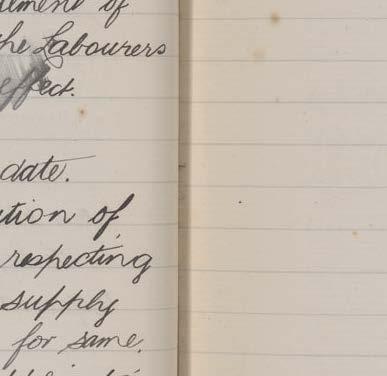 ement of
the Labourers
effect.
date.
tion of
respecting
supply
for same.